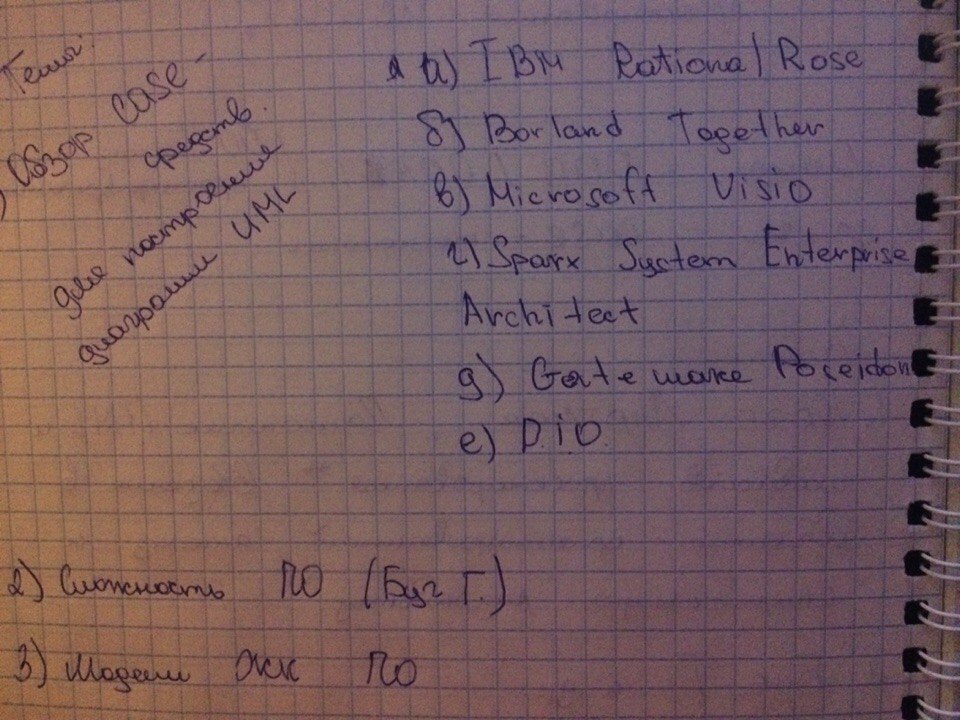 Темы:
) Обзор CASE-
средств.
для построения
диаграмм UML
а) IBM Rational Rose
б) Borland Together
в) Microsoft Visio
г) Sparx System Enterprise
Architect
д) Gentleware Poseidon
е) DiO
2) Сложность ПО (Буч Г.)
3) Модели ЖЦ ПО